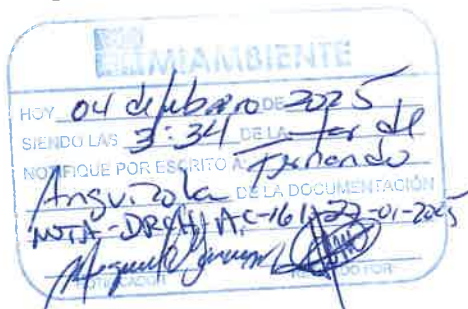 MIAMBIENTE
HOY 04 de febrero DE 2025
SIENDO LAS 3:34 DE LA tarde
NOTIFIQUE POR ESCRITO A Fernando
Anguizola DE LA DOCUMENTACIÓN
NOTA-DRCH-AC-161-22-01-2025
NOTIFICADOR